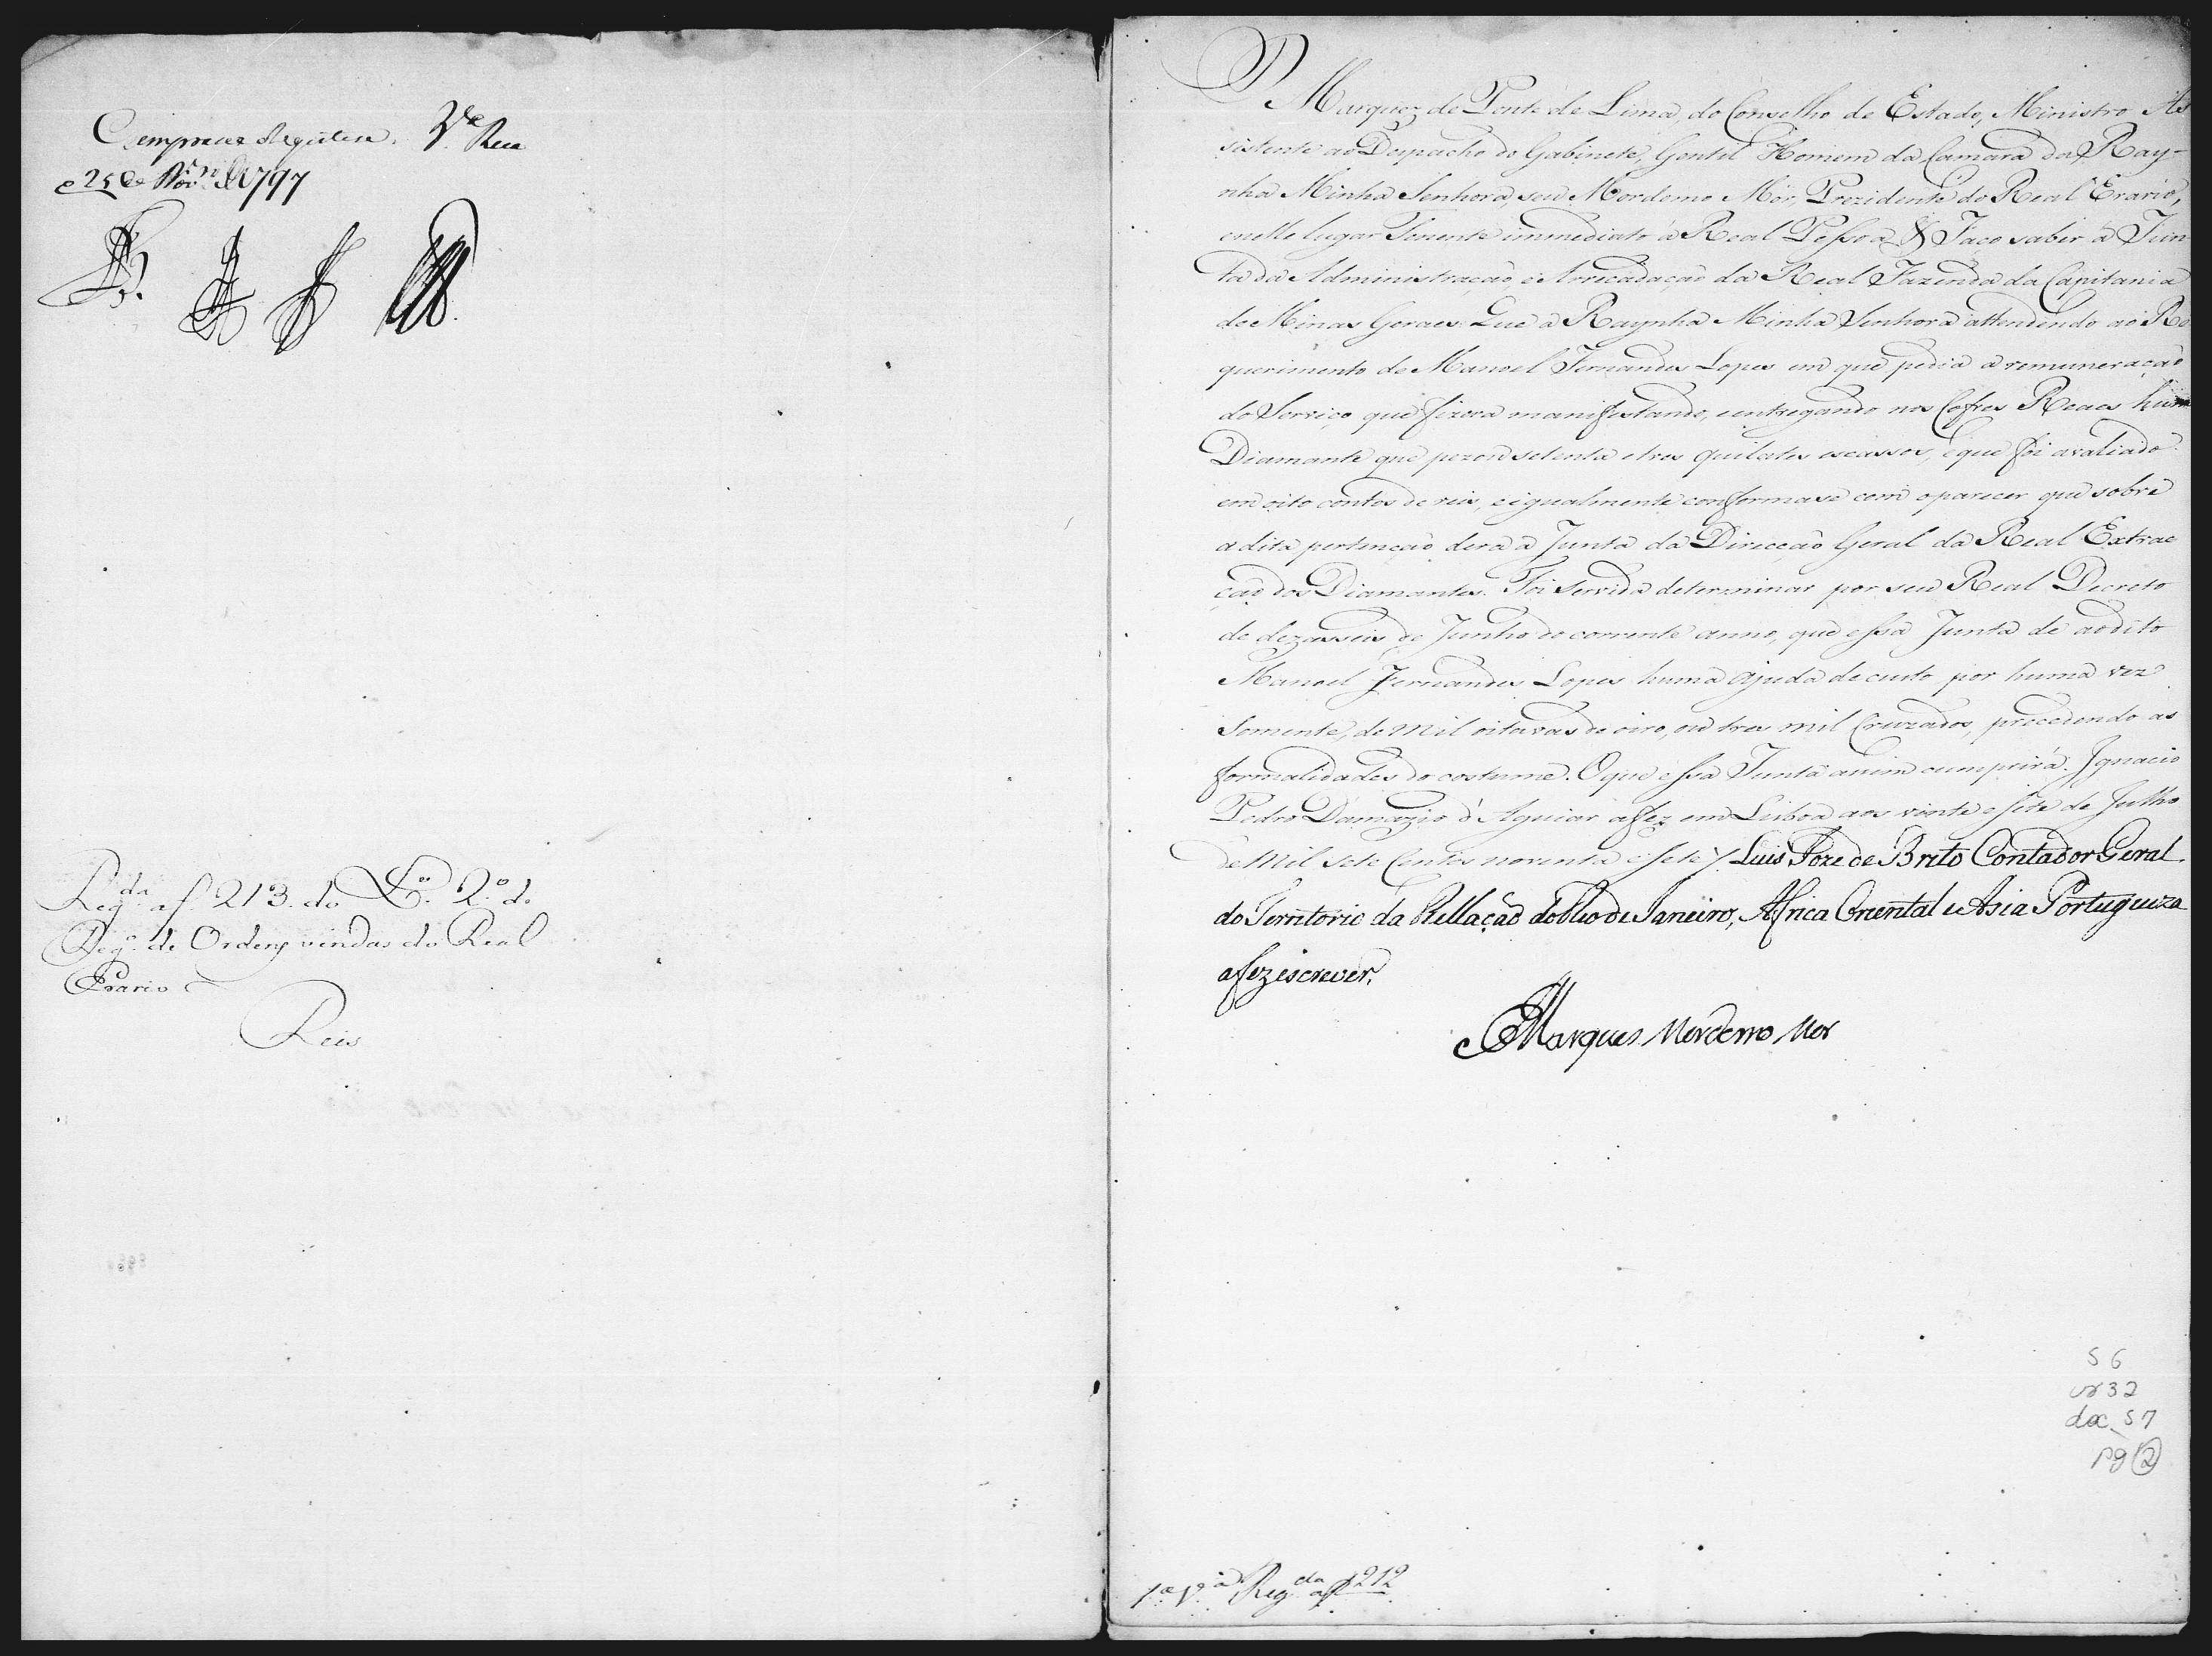 Cumprase e Registese. V.ª Rica
e 25 de Nov.ro de 1797
Reg.da a f. 213. do L.o 2.o do
Reg.o de Ordens vindas do Real
Erario
Reis
O Marquez de Ponte de Lima, do Conselho de Estado, Ministro As
sistente ao Despacho do Gabinete, Gentil Homem da Camara da Ray-
nha Minha Senhora, seu Mordomo Mór, Prezidente do Real Erario,
e nelle lugar Tenente immediato á Real Pessoa &. Faço saber á Jun
ta da Administração, e Arrecadação da Real Fazenda da Capitania
de Minas Geraes: Que a Raynha Minha Senhora attendendo ao Re
querimento de Manoel Fernandes Lopes em que pedia a remuneração
do Serviço que fizera manifestando, e entregando nos Cofres Reaes hum
Diamante que pezou setenta e tres quilates escassos, e que foi avaliado
em oito contos de reis, e igualmente conformase com o parecer que sobre
a dita pertenção dera a Junta da Direcção Geral da Real Extrac
ção dos Diamantes. Foi Servida determinar por seu Real Decreto
de dezasseis de Junho do corrente anno, que essa Junta dê ao dito
Manoel Fernandes Lopes huma ajuda de custo por huma vez
Somente, de mil oitavas de oiro, ou tres mil Cruzados, precedendo as
formalidades do costume. O que essa Junta assim cumprirá. Ignacio
Pedro Damazio d'Aguiar a fez em Lisboa aos vinte e sete de Julho
de Mil Sete Centos noventa e sete/. Luis Joze de Brito Contador Geral
do Territorio da Rellação do Rio de Janeiro, Africa Oriental e Asia Portugueza
a fez escrever.
Marques Mordomo Mor
56
cx 32
doc 57
pg 2
1.ª V.ª Reg.da a f 212